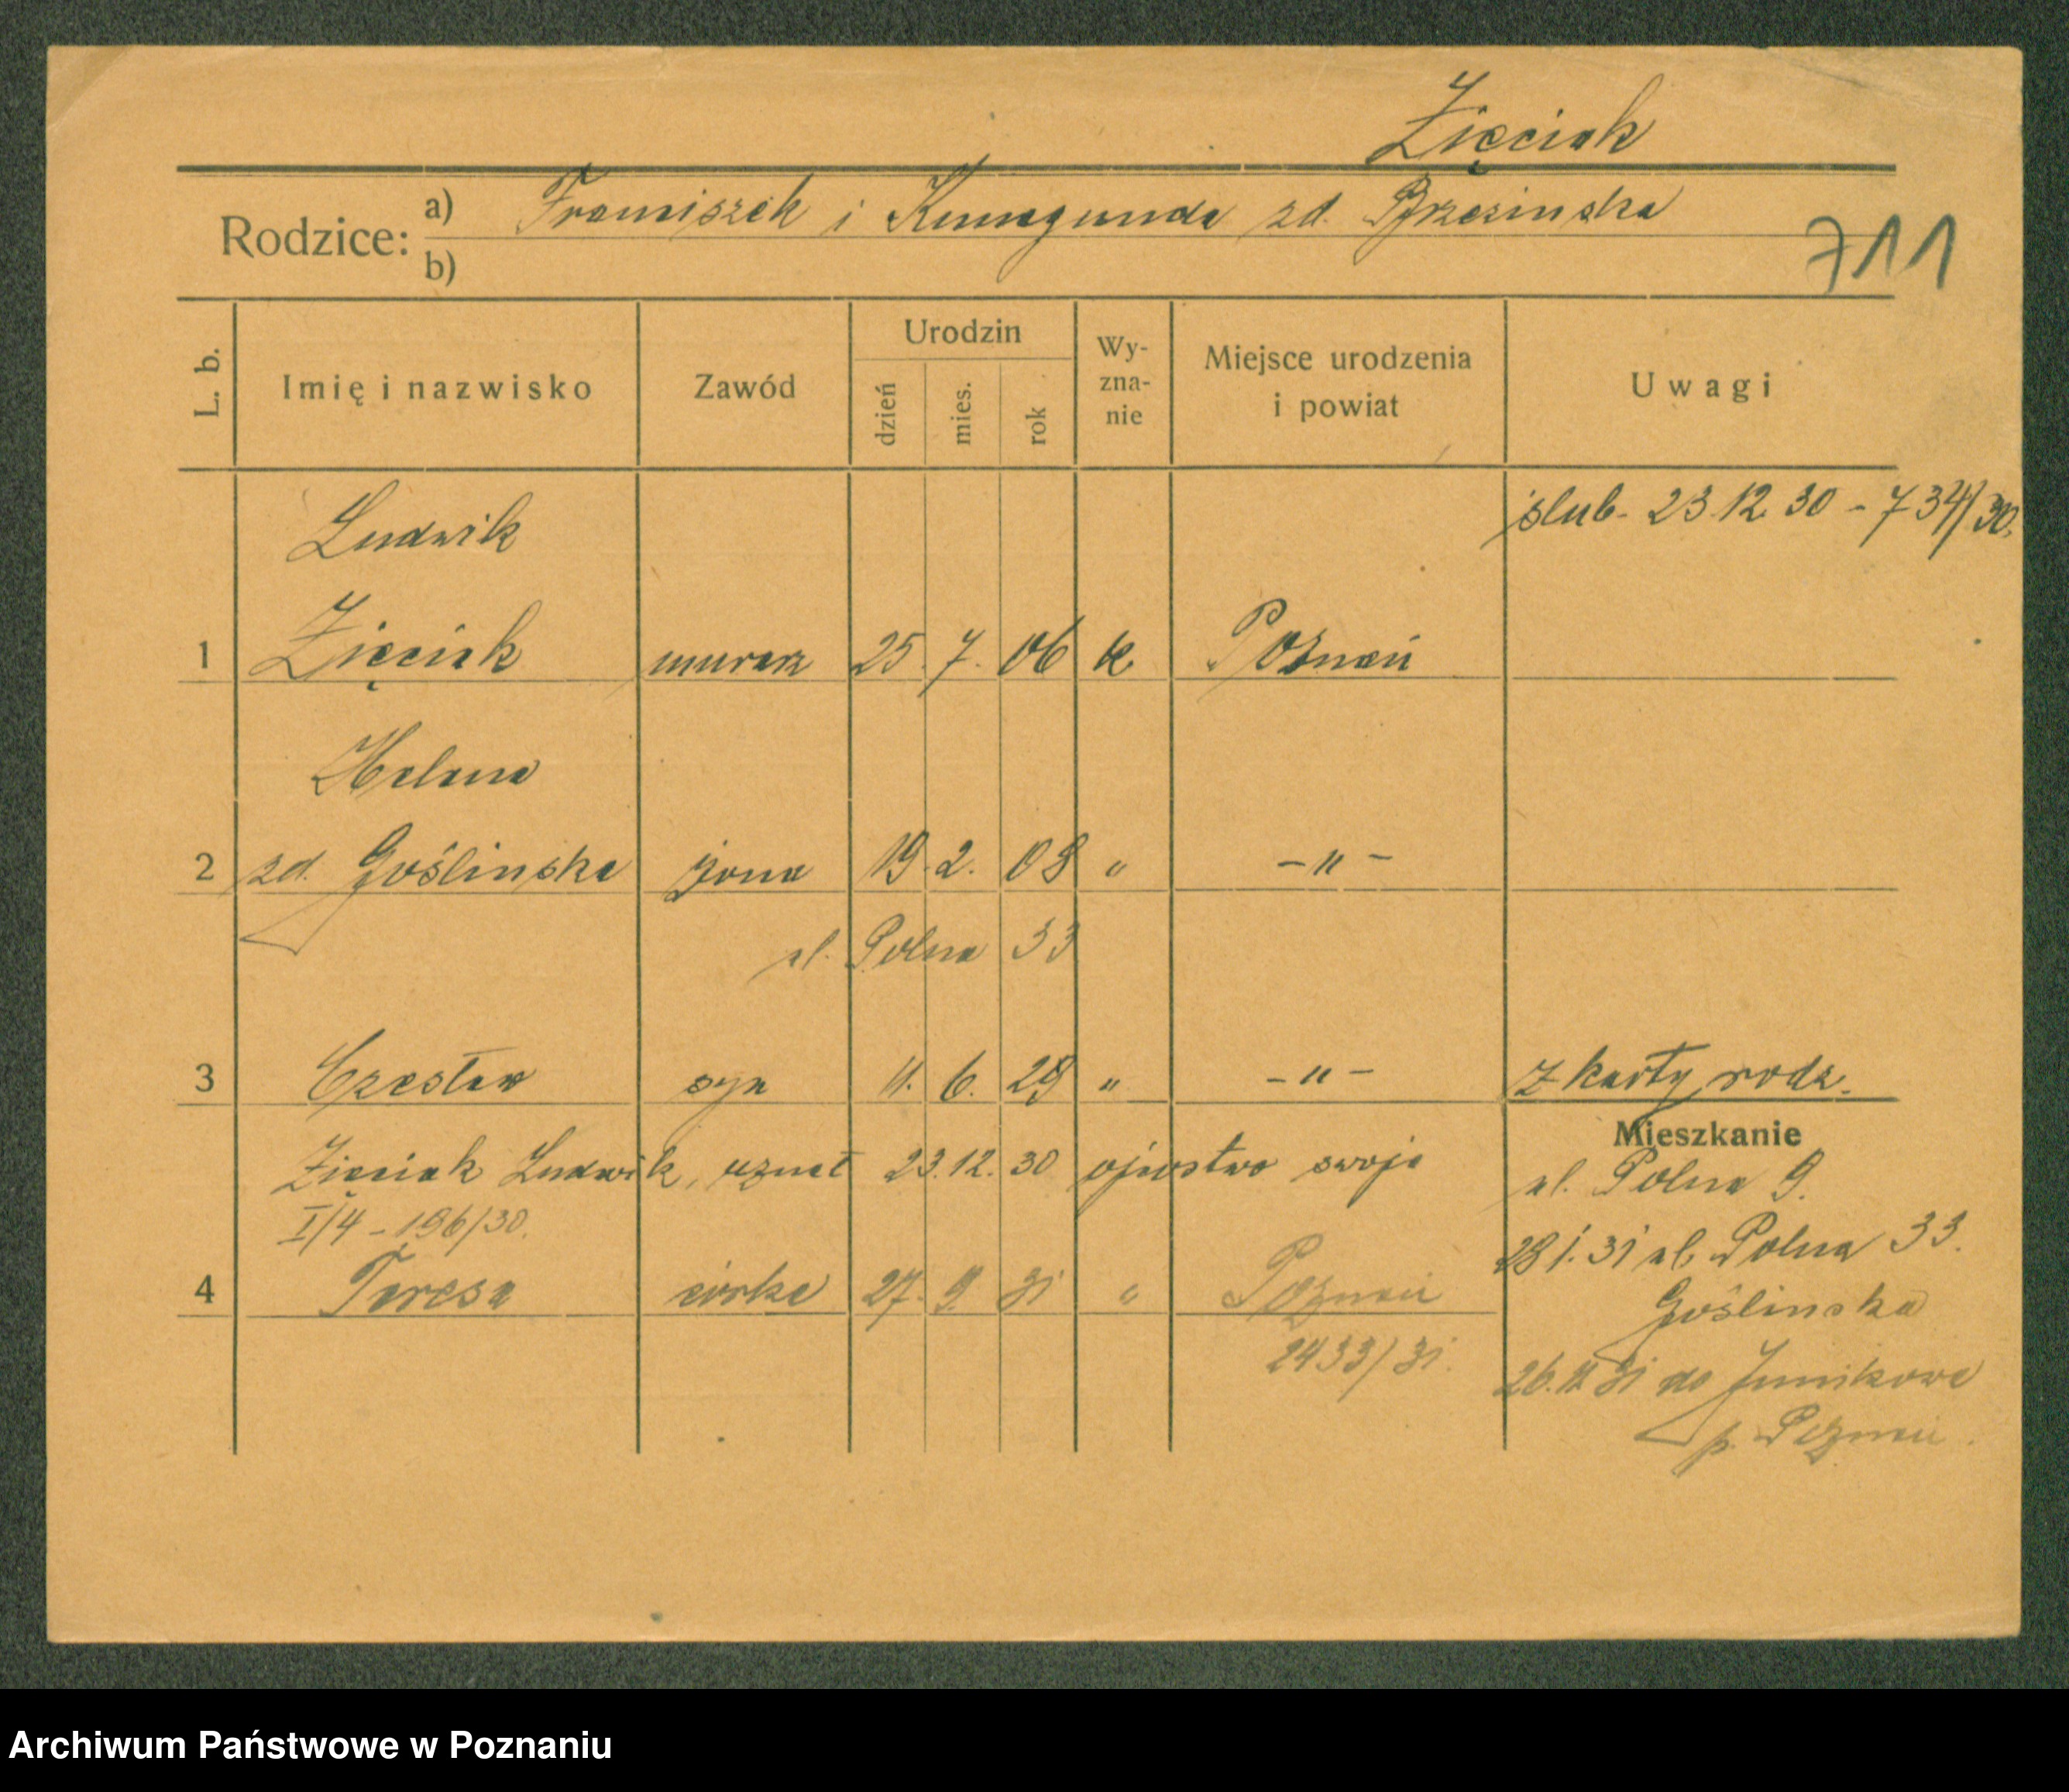 Zięciak
Rodzice: a) Franciszek i Kunegunda zd. Brzezinska
b)
711
L. b. Imię i nazwisko Zawód Urodzin dzień mies. rok Wy-zna-nie Miejsce urodzenia i powiat Uwagi
ślub- 23 12 30 - 734/30.
Ludwik
1 Zięciak murarz 25. 7. 06 k. Poznań
Helena
2 zd. Goślinska żona 19. 2. 08 " -"-
ul. Polna 33
3 Czesław syn 11. 6. 29 " -"- z karty rodz.
Mieszkanie
Zięciak Ludwik, uznał 23.12.30 ojcostwo swoje
ul. Polna 9.
I/4 - 196/30.
28 1. 31 ul. Polna 33.
4 Teresa córka 27. 9. 31 " Poznań
Goślinska
2433/31.
26. 11 31 do Junikowa
p. Poznań.
Archiwum Państwowe w Poznaniu